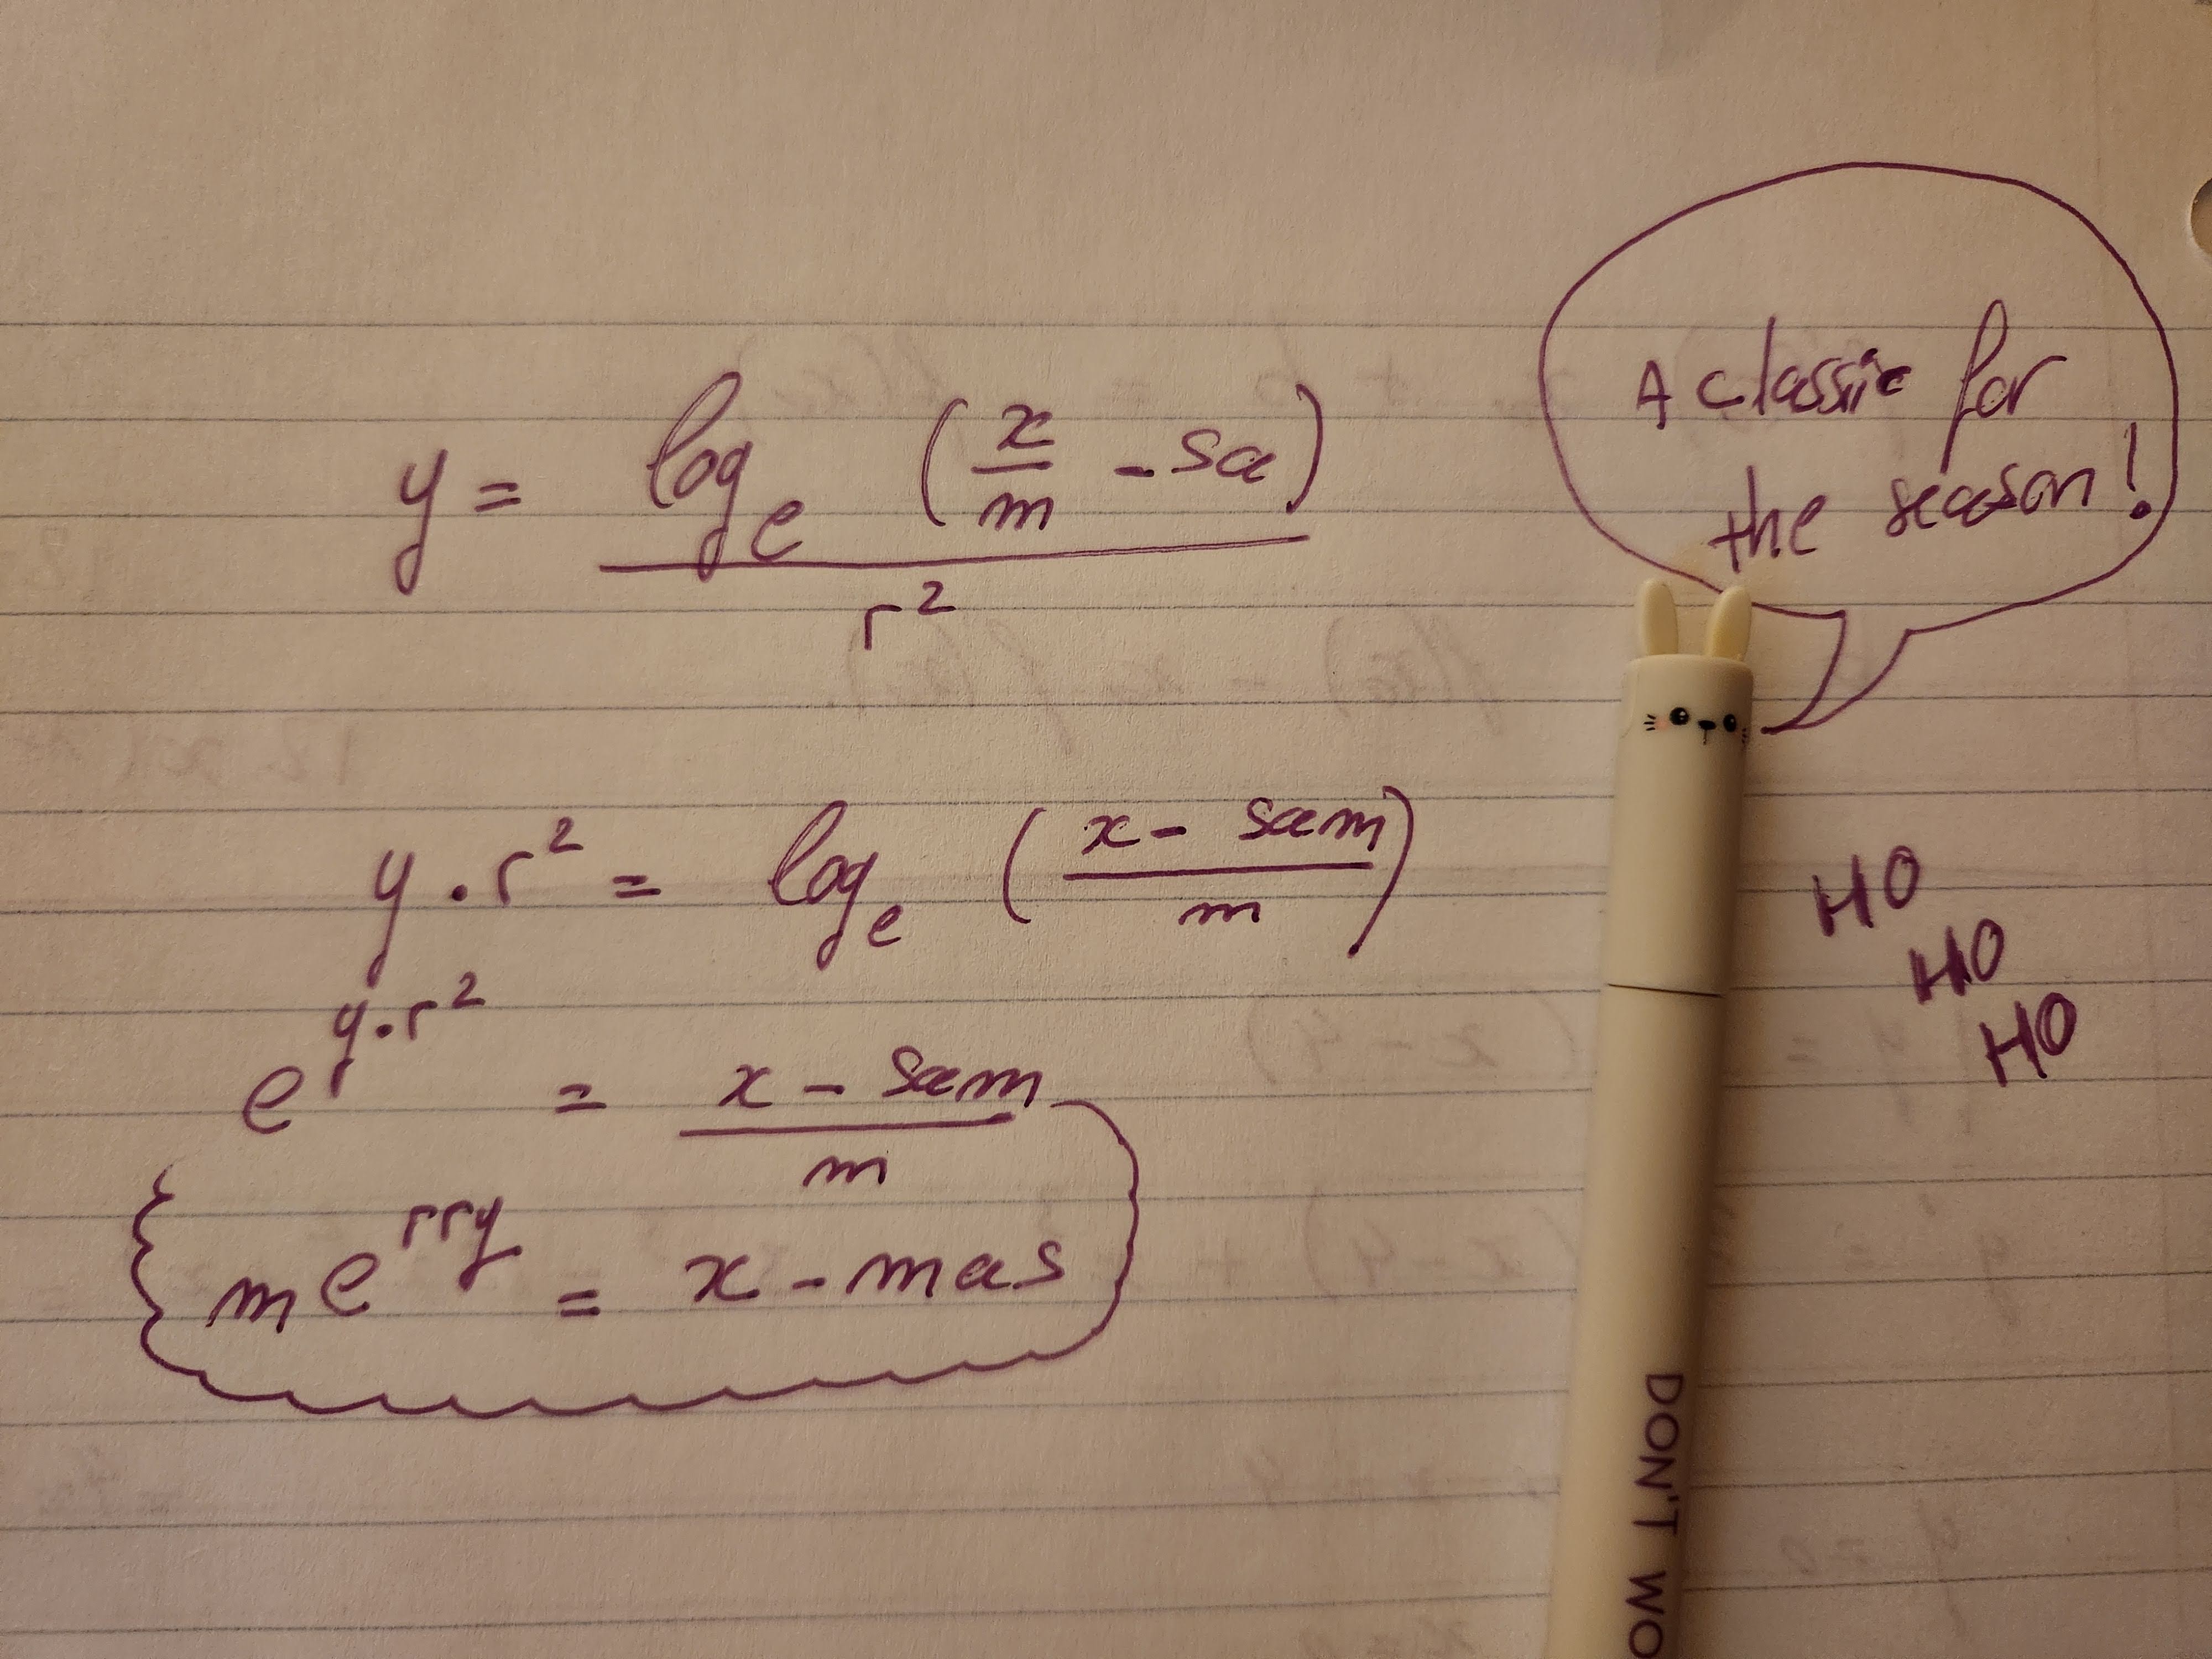 y = log_e (x/m - sa) / r²
y . r² = log_e ((x - sam) / m)
e^(y.r²) = (x - sam) / m
me^(rry) = x - mas
A classic for
the season!
HO
HO
HO
DON'T WO